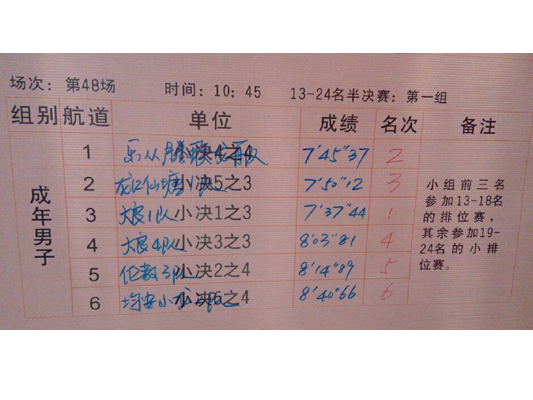 场次：第48场 时间：10：45 13-24名半决赛：第一组
组别 航道 单位 成绩 名次 备注
成年男子
1 小决4之4 7'45"37 2
2 小决5之3 7'50"12 3
3 大良1队 小决1之3 7'37"44 1
4 大良4队 小决3之3 8'03"81 4
5 伦教3队 小决2之4 8'14"89 5
6 均安 小决6之4 8'40"66 6
小组前三名
参加13-18名
的排位赛，
其余参加19-
24名的小排
位赛。